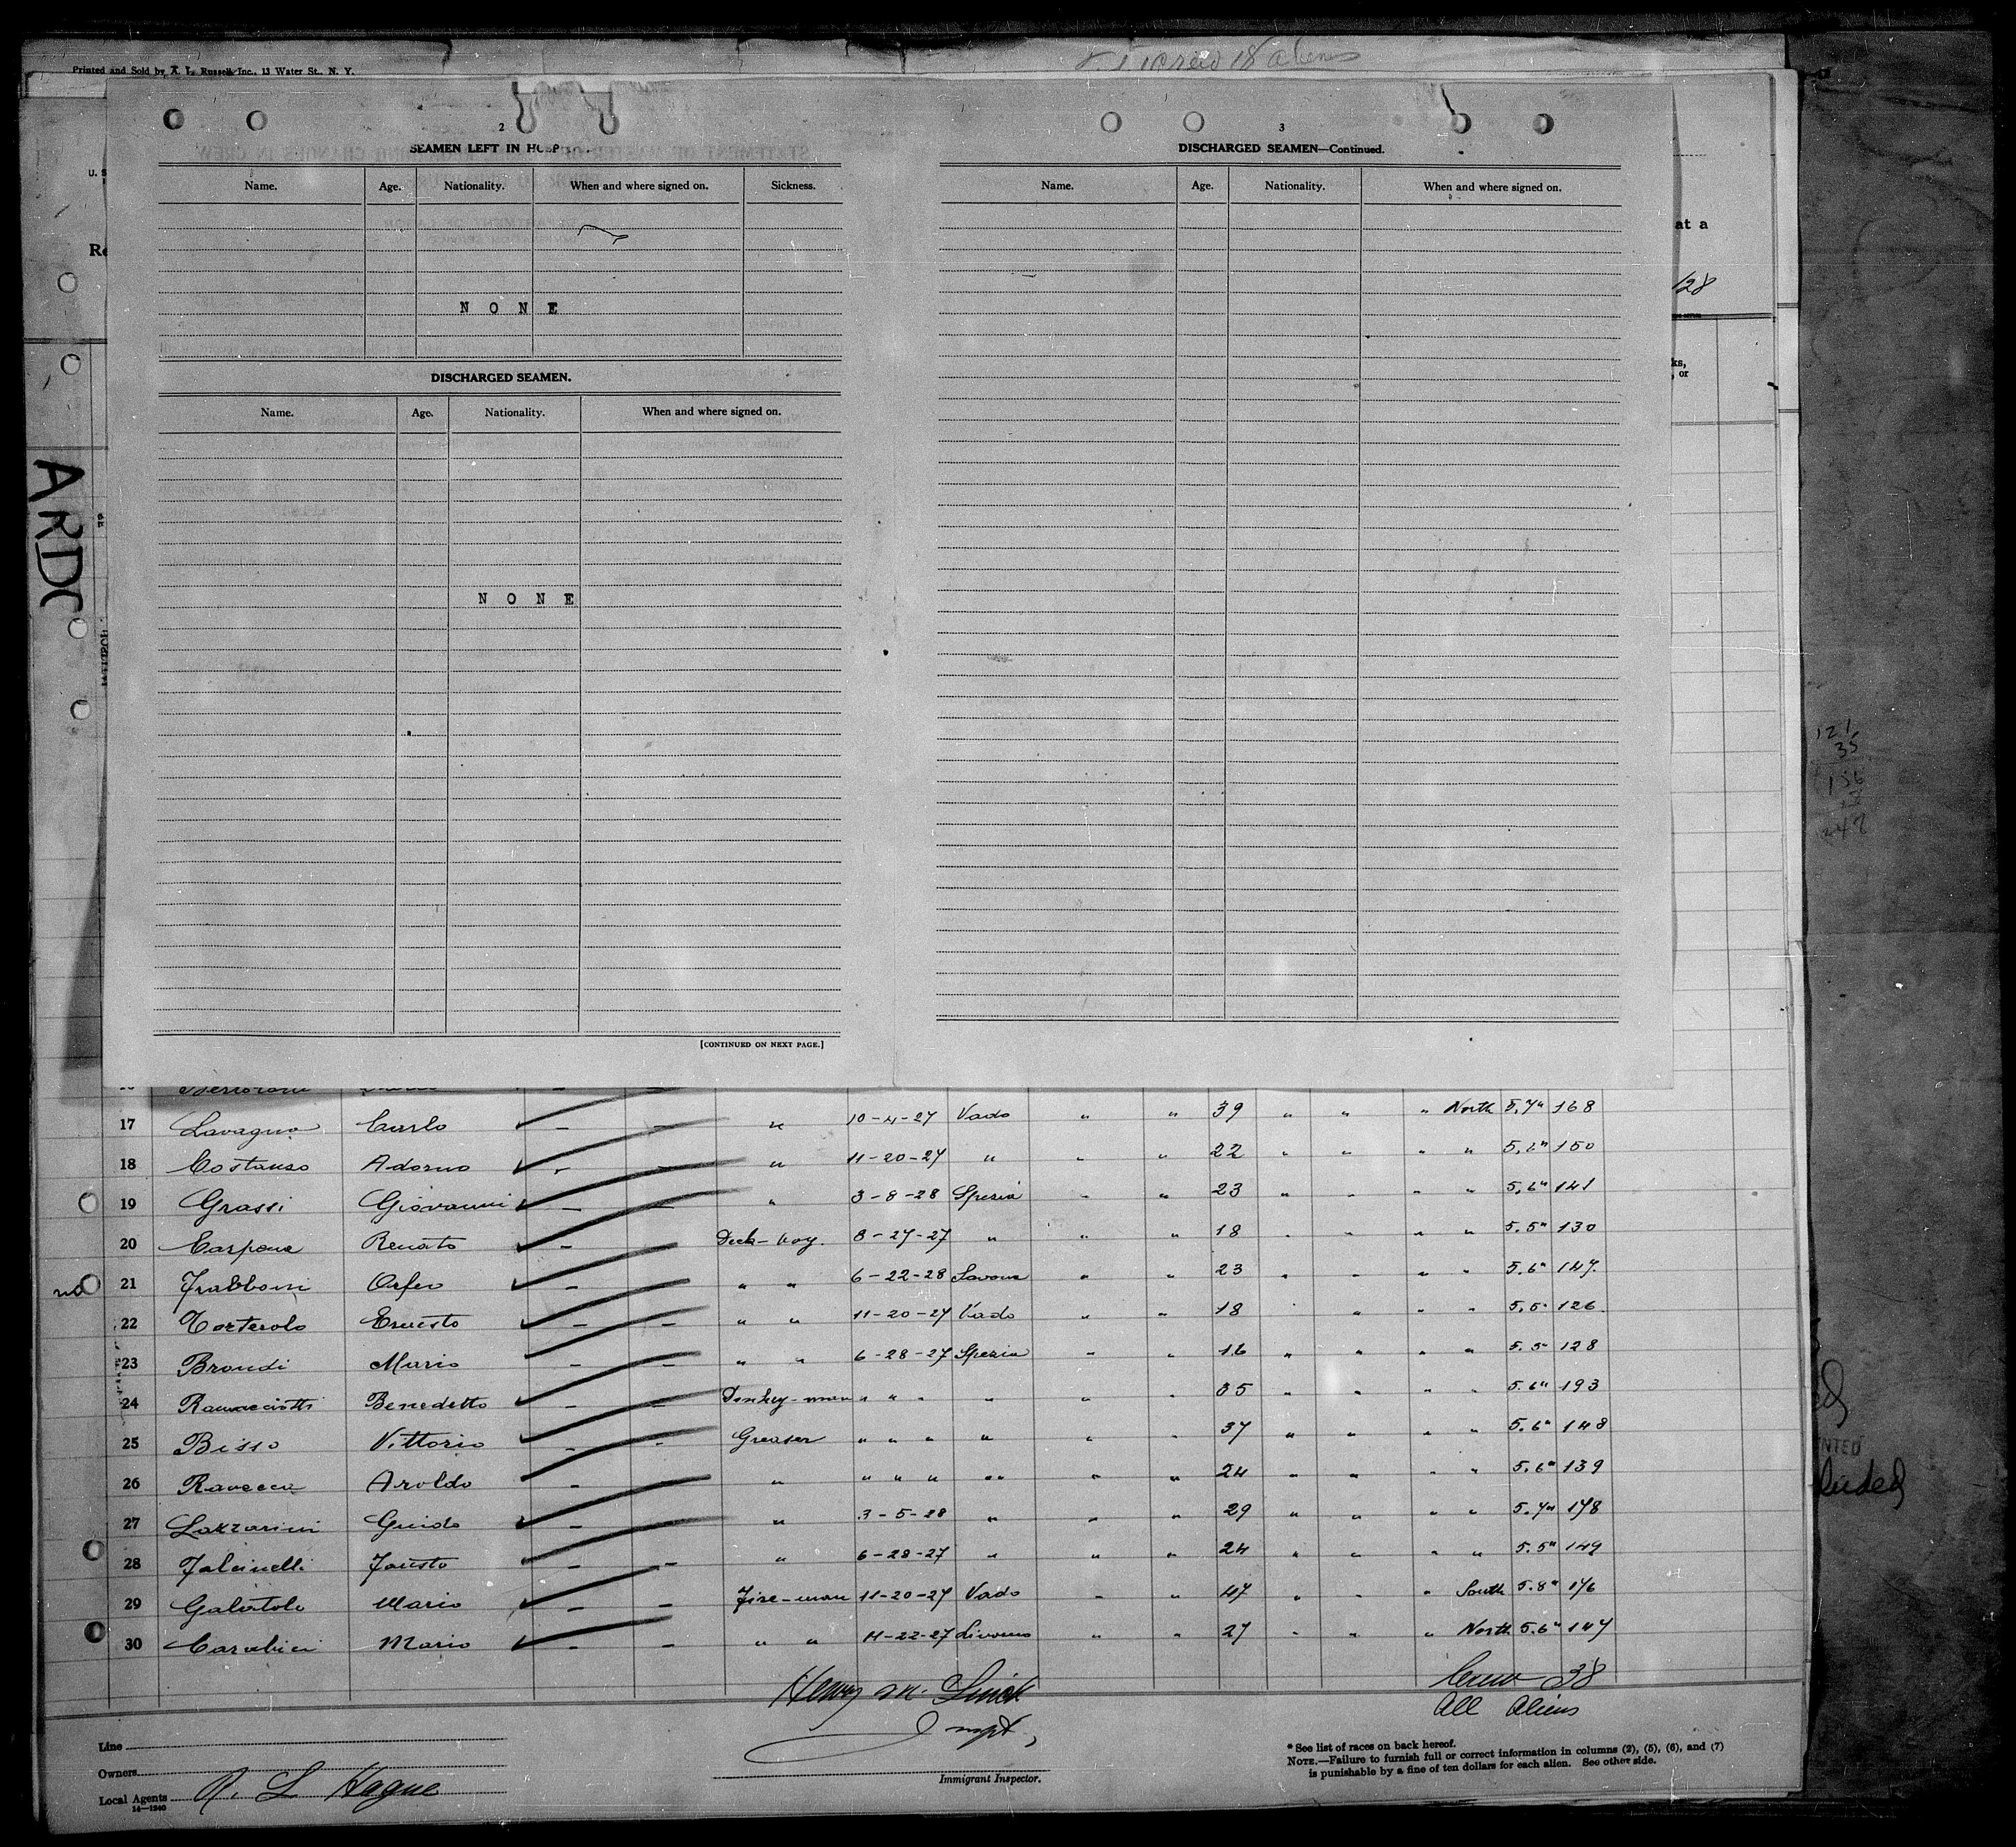 Printed and Sold by A. L. Russell, Inc., 13 Water St., N. Y.
18 aliens
U. S
Re
at a
128
ks,
, or
ARDC
2
SEAMEN LEFT IN HOSP
Name. Age. Nationality. When and where signed on. Sickness.
NONE
DISCHARGED SEAMEN.
Name. Age. Nationality. When and where signed on.
NONE
[CONTINUED ON NEXT PAGE.]
3
DISCHARGED SEAMEN—Continued.
Name. Age. Nationality. When and where signed on.
121
35
156
17 Lavagno Carlo — — " 10-4-27 Vado " " 39 " " " North 5.7" 168
18 Costanso Adorno - - " 11-20-27 " " " 22 " " " " 5.6" 150
19 Grassi Giovanni — — " 3-8-28 Spezia " " 23 " " " " 5.6" 141
20 Carpena Renato — Deck-boy. 8-27-27 " " " 18 " " " " 5.5" 130
no 21 Frabboni Orfeo — " " 6-22-28 Savona " " 23 " " " " 5.6" 147.
22 Torterolo Ernesto — — " " 11-20-27 Vado " " 18 " " " " 5.5" 126.
23 Brondi Mario — — " " 6-28-27 Spezia " " 16 " " " " 5.5" 128
24 Ramacciotti Benedetto — — Donkey-man " " " " " " 35 " " " " 5.6" 193
25 Bisso Vittorio — - Greaser " " " " " " 37 " " " " 5.6" 148
26 Ravecca Aroldo — " " " " " " " 24 " " " " 5.6" 139
27 Lazzarini Guido — " 3-5-28 " " " 29 " " " " 5.7" 178
28 Falcinelli Fausto — — " 6-28-27 " " " 24 " " " " 5.5" 149
29 Galatolo Mario — — Fire-man 11-20-27 Vado " " 47 " " " South 5.8" 176
30 Carubini Mario — — " " 11-22-27 Livorno " " 27 " " " North 5.6" 147
Crew 38
All Aliens
Henry M.
Inspt,
Immigrant Inspector.
Line
Owners
Local Agents R. L. Hague
14—1240
* See list of races on back hereof.
NOTE.—Failure to furnish full or correct information in columns (2), (5), (6), and (7)
is punishable by a fine of ten dollars for each alien. See other side.
NTED
luded